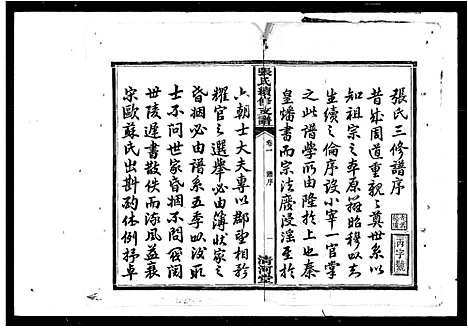 張氏三修譜序
丙字號
昔成周道重親親奠世系以
知祖宗之本原辨昭穆以美
生續之倫序設小宰一官掌
之此譜學所由隆於上也秦
皇燔書而宗法廢浸淫至於
張氏續修支譜
卷一
譜序
一
清河堂
六朝士大夫專以郡望相矜
耀官之選舉必由簿狀家之
昏因必由譜系五季以後取
士不問世家昏因不問閥閱
世陵遲書散佚而流風益衰
宋歐蘇氏出斟酌體例抒卓